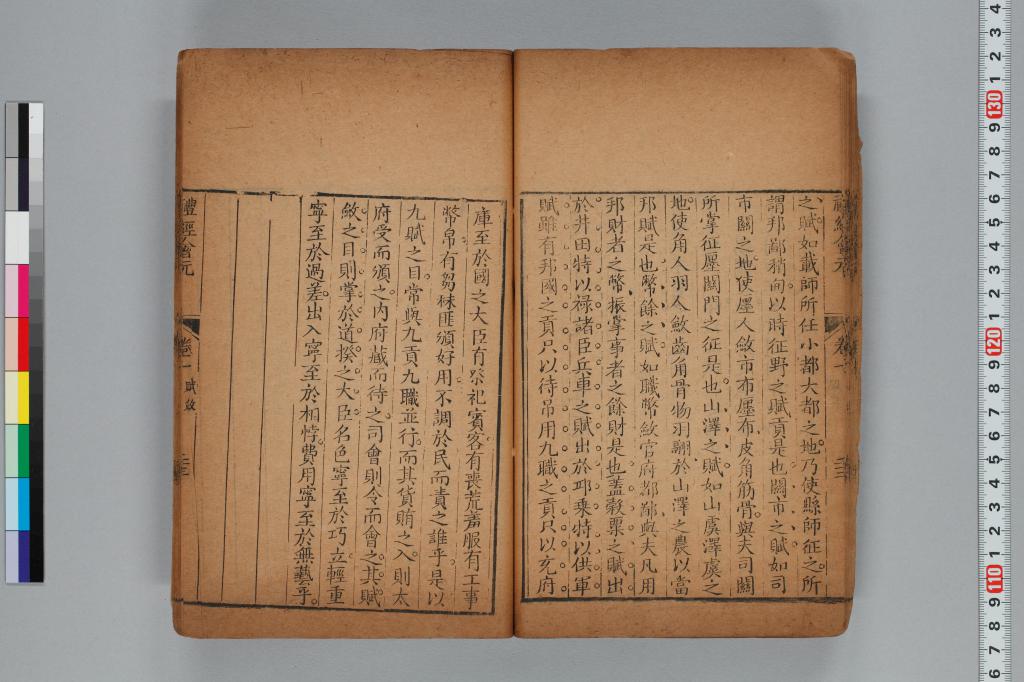 之賦如載師所任小都大都之地乃使縣師征之所
謂邦鄙稍甸以時征野之賦貢是也關市之賦如司
市關之地使廛人斂市布廛布皮角筋骨與夫司關
所掌征廛關門之征是也山澤之賦如山虞澤虞之
地使角人羽人斂齒角骨物羽翮於山澤之農以當
邦賦是也幣餘之賦如職幣斂官府都鄙與夫凡用
邦財者之幣振掌事者之餘財是也蓋穀粟之賦出
於井田特以祿諸臣兵車之賦出於邱乘特以供軍
賦雖有邦國之貢只以待弔用九職之貢只以充府
庫至於國之大臣有祭祀賓客有喪荒羞服有工事
幣帛有芻秣匪頒好用不調於民而責之誰乎是以
九賦之目常與九貢九職並行而其貨賄之入則太
府受而頒之內府藏而待之司會則令而會之其賦
斂之目則掌於道揆之大臣名色寧至於巧立輕重
寧至於過差出入寧至於相悖費用寧至於無藝乎
禮經會元
卷一
賦斂